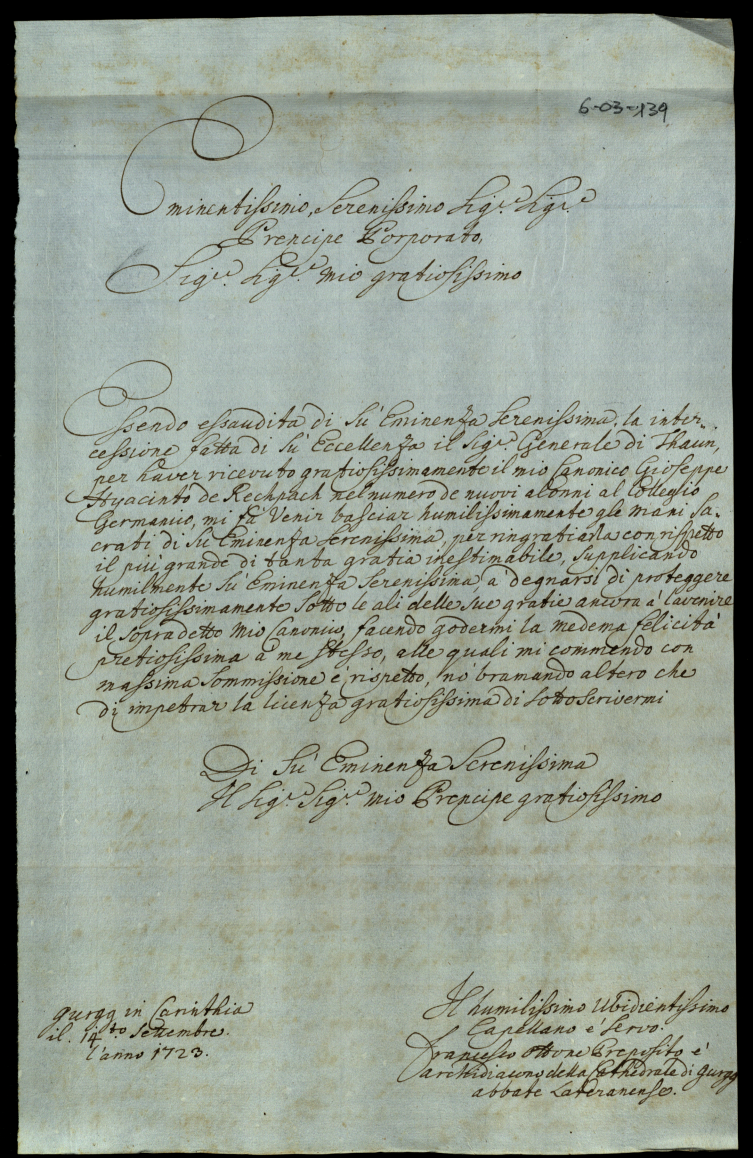 6-03-139
Eminentissimo, Serenissimo Sigre. Sigre.
Prencipe Porporato,
Sigre. Sigre. mio gratiosissimo
Essendo essaudita di Su' Eminenza Serenissima la inter-
cessione fatta di Su' Eccellenza il Sigre. Generale di Thaun,
per haver ricevuto gratiosissimamente il mio Canonico Gioseppe
Hyacinto de Rechpach nel numero de nuovi alonni al Colleggio
Germanico, mi fà Venir basciar humilissimamente gle mani Sa-
crati di Su' Eminenza Serenissima, per ringratiarla con rispetto
il più grande di tanta gratia inestimabile, Supplicando
humilmente Su' Eminenza Serenissima, a degnarsi di proteggere
gratiosissimamente Sotto le ali delle Sue gratie ancora à l'avenire
il Sopradetto mio Canonico, facendo godermi la medema felicità
pretiosissima à me Stesso, alle quali mi commendo con
massima Sommissione e rispetto, nò bramando altero che
di impetrar la licenza gratiosissima di Sottoscrivermi
Di Su' Eminenza Serenissima
Il Sigre. Sigre. mio Prencipe gratiosissimo
Gurgg in Carinthia
il. 14to. Settembre.
l'anno 1723.
Il humilissimo Ubidientissimo
Capellano è Servo.
Francesco Ottone Preposito è
archidiacono della Cathedrale di Gurgg
abbate Lateranense.